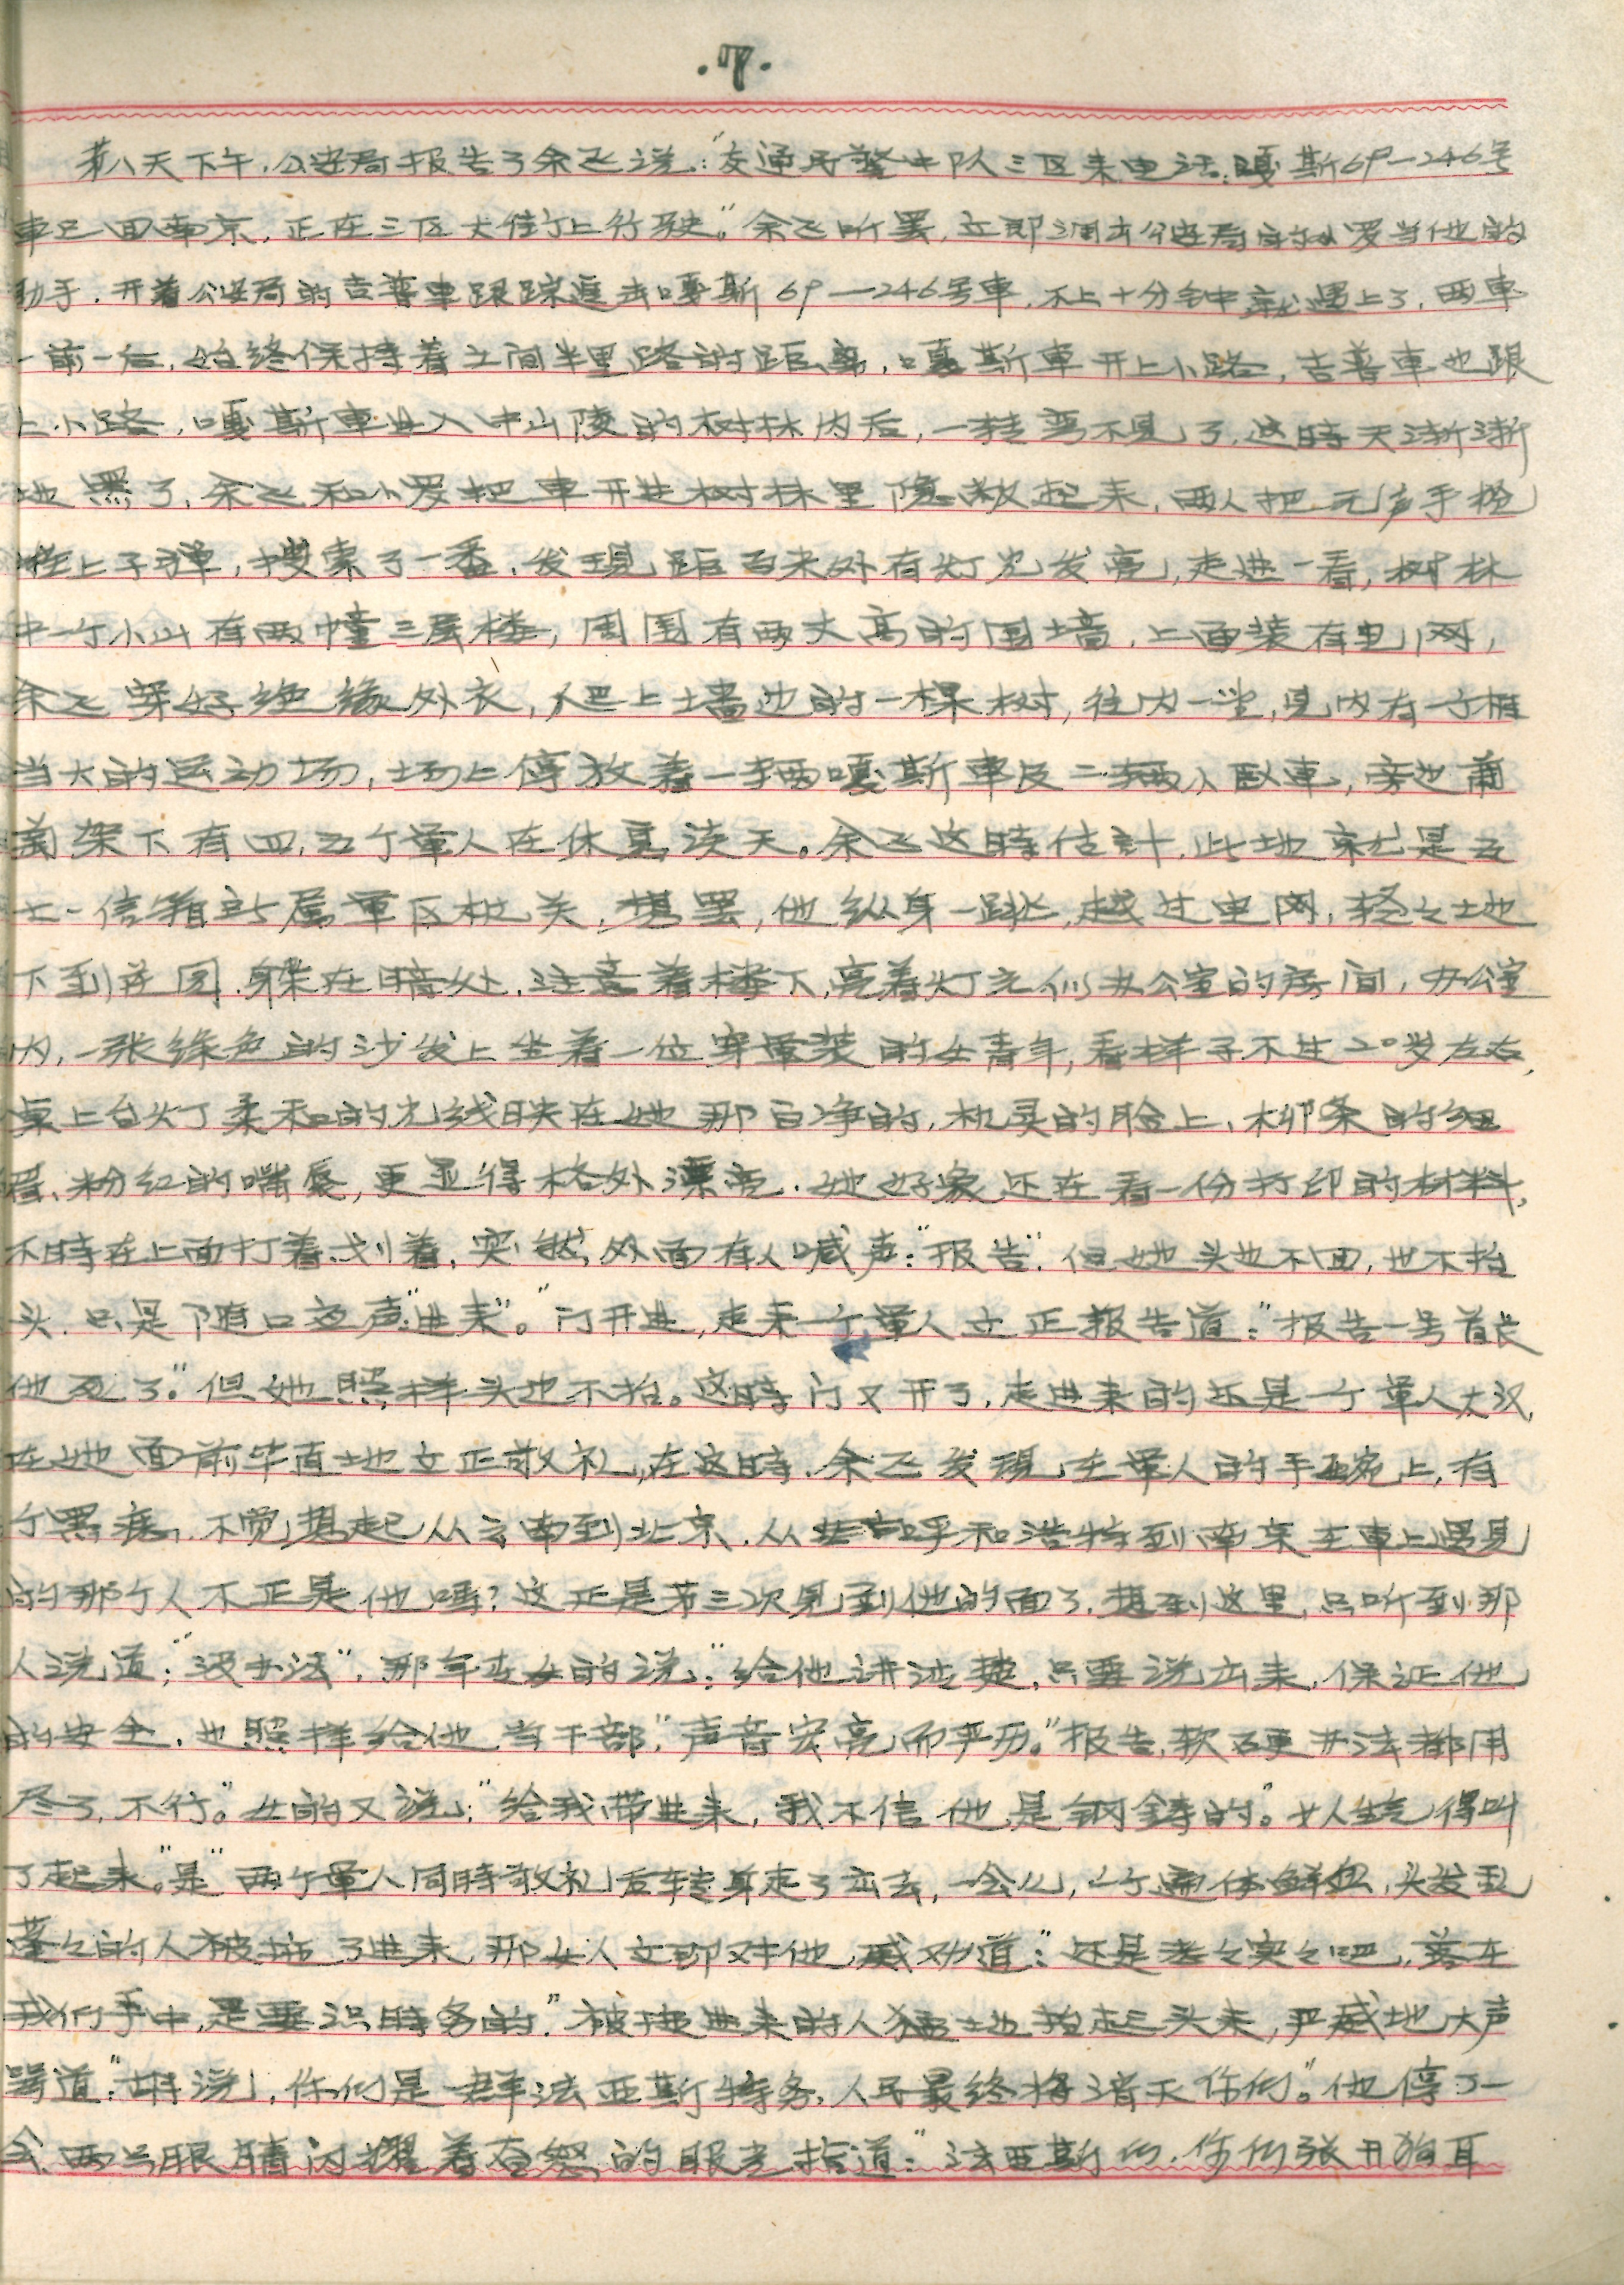 ·7·
苐八天下午，公安局报告了余飞说：“交通民警中队三区来电话：嘎斯69—246号
車已回南京，正在三区大街上行驶。”余飞听罢，立即调出公安局的小罗当他的
助手，开着公安局的吉普車跟踪追击嘎斯69—246号車，不上十分钟就遇上了，两車
一前一后，始终保持着之间半里路的距离，嘎斯車开上小路，吉普車也跟
上小路，嘎斯車进入中山陵的树林内后，一转弯不見了，这時天渐渐
地黑了，余飞和小罗把車开进树林里隐蔽起来，两人把无声手枪
推上子弹，搜索了一番，发現距百来外有灯光发亮，走进一看，树林
中一个小山有两幢三层楼，周围有两丈高的围墙，上面装有电网，
余飞穿好绝缘外衣，爬上墙边的一棵树，往内一望，見内有一个相
当大的运动场，场上停放着一辆嘎斯車及二辆小卧車，旁边葡
萄架下有四，五个軍人在休息谈天。余飞这時估計，此地就是五
七一信箱所属軍区机关，想罢，他纵身一跳，越过电网，轻々地
下到花园，躲在暗处，注意着楼下，亮着灯光似办公室的房间，办公室
内，一张绿色的沙发上坐着一位穿軍装的女青年，看样子不过20岁左右，
桌上台灯柔和的光线映在她那白净的，机灵的脸上，柳条的细
眉、粉红的嘴唇，更显得格外漂亮．她好象还在看一份打印的材料，
不時在上面打着、划着，突然，外面有人喊声：“报告”，但她头也不回，也不抬
头，只是随口应声“进来”。“门开进，走来一个軍人立正報告道：“报告一号首长
他死了。”但她照样头也不抬。这時门又开了，走进来的还是一个軍人大汉，
在她面前毕直地立正敬礼，在这時，余飞发現在軍人的手腕上，有
个黑痣，不觉想起从云南到北京，从呼和浩特到南京在車上遇見
的那个人不正是他嗎？这正是苐三次見到他的面了，想到这里，只听到那
人说道：“没办法”，那年青女的说：“给他讲清楚，只要说出来，保证他
的安全，也照样给他当干部”，声音宏亮而严历。“报告，软硬办法都用
尽了，不行。”女的又说：“给我带进来，我不信他是钢鋳的。”女人生气得叫
了起来。“是”两个軍人同時敬礼后转身走了出去，一会儿，一个遍体鲜血，头发乱
蓬々的人被拖了进来，那女人立即对他威劝道：“还是老々实々吧，落在
我们手中，是要识時务的”，被拖进来的人猛地抬起头来，严威地大声
骂道：“胡说，你们是一群法亚斯特务，人民最终将消灭你们。”他停了一
会，两只眼睛闪耀着奋怒的眼光指道：“法亚斯们，你们张开狗耳